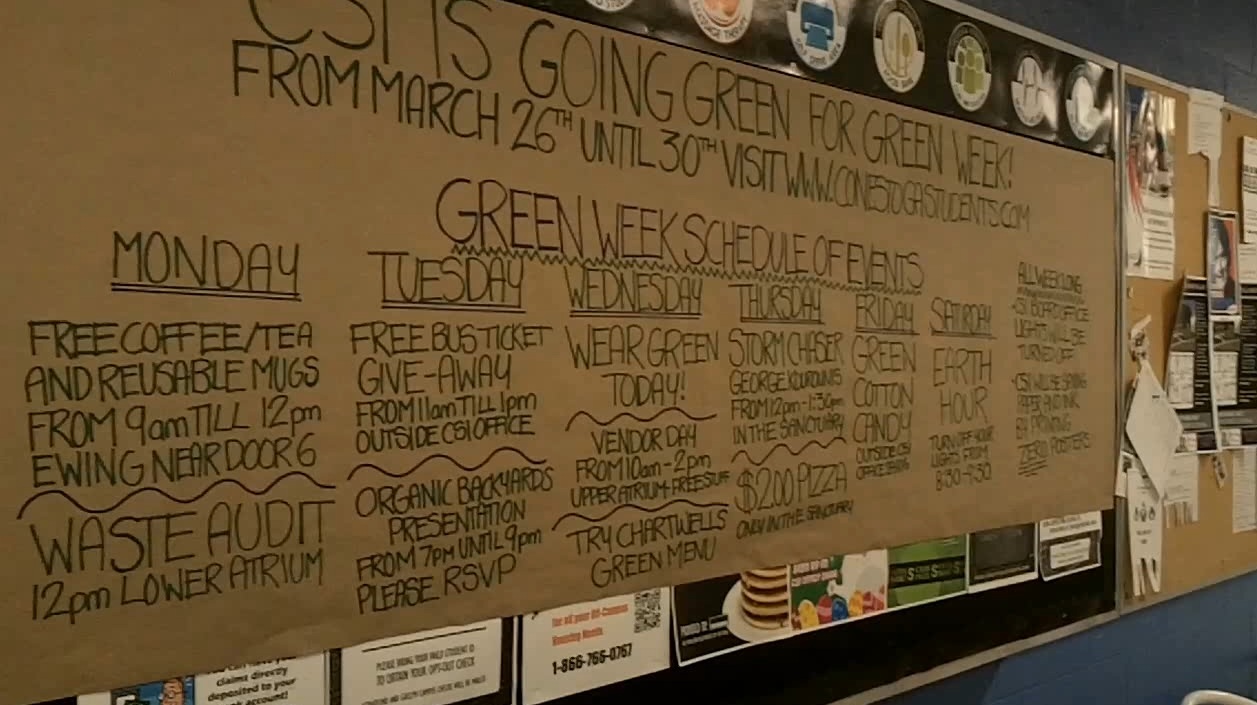 CSI IS GOING GREEN FOR GREEN WEEK!
FROM MARCH 26TH UNTIL 30TH VISIT WWW.CONESTOGASTUDENTS.COM
GREEN WEEK SCHEDULE OF EVENTS
MONDAY
FREE COFFEE/TEA
AND REUSABLE MUGS
FROM 9am TILL 12pm
E WING NEAR DOOR 6
WASTE AUDIT
12pm LOWER ATRIUM
TUESDAY
FREE BUS TICKET
GIVE-AWAY
FROM 11am TILL 1pm
OUTSIDE CSI OFFICE
ORGANIC BACKYARDS
PRESENTATION
FROM 7pm UNTIL 9pm
PLEASE RSVP
WEDNESDAY
WEAR GREEN
TODAY!
VENDOR DAY
FROM 10am-2pm
UPPER ATRIUM-FREE STUFF
TRY CHARTWELLS
GREEN MENU
THURSDAY
STORM CHASER
GEORGE KOUROUNIS
FROM 12pm-1:30pm
IN THE SANCTUARY
$2.00 PIZZA
ONLY IN THE SANCTUARY
FRIDAY
GREEN
COTTON
CANDY
OUTSIDE CSI
OFFICE
SATURDAY
EARTH
HOUR
TURN OFF YOUR
LIGHTS FROM
8:30-9:30
ALL WEEK LONG
CSI BOARD OFFICE
LIGHTS WILL BE
TURNED OFF
CSI WILL BE SAVING
PAPER AND INK
BY PRINTING
ZERO POSTERS
claims directly
deposited to your
account!
PLEASE BRING YOUR VALID STUDENT ID
TO OBTAIN YOUR OPT-OUT CHECK
for all your Off-Campus
Housing Needs
1-866-766-0767